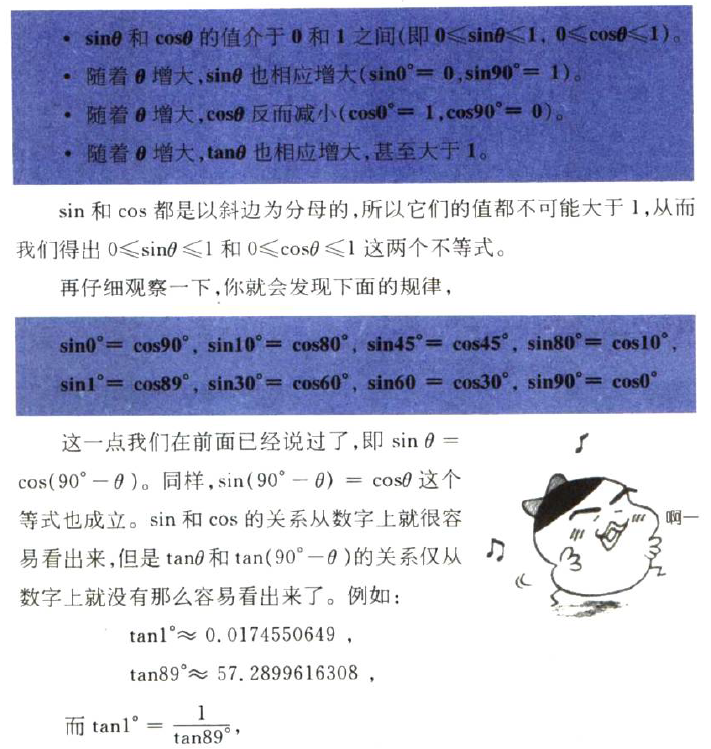 • sinθ 和 cosθ 的值介于 0 和 1 之间(即 0≤sinθ≤1, 0≤cosθ≤1)。
• 随着 θ 增大,sinθ 也相应增大(sin0°= 0,sin90°= 1)。
• 随着 θ 增大,cosθ 反而减小(cos0°= 1,cos90°= 0)。
• 随着 θ 增大,tanθ 也相应增大,甚至大于 1。
sin 和 cos 都是以斜边为分母的,所以它们的值都不可能大于 1,从而
我们得出 0≤sinθ≤1 和 0≤cosθ≤1 这两个不等式。
再仔细观察一下,你就会发现下面的规律,
sin0°= cos90°, sin10°= cos80°, sin45°= cos45°, sin80°= cos10°,
sin1°= cos89°, sin30°= cos60°, sin60 = cos30°, sin90°= cos0°
这一点我们在前面已经说过了,即 sin θ =
cos(90°－θ)。同样,sin(90°－θ) = cosθ 这个
等式也成立。sin 和 cos 的关系从数字上就很容
易看出来,但是 tanθ 和 tan(90°－θ)的关系仅从
数字上就没有那么容易看出来了。例如:
啊一
tan1°≈ 0.0174550649 ,
tan89°≈ 57.2899616308 ,
而 tan1° = 1/tan89°,